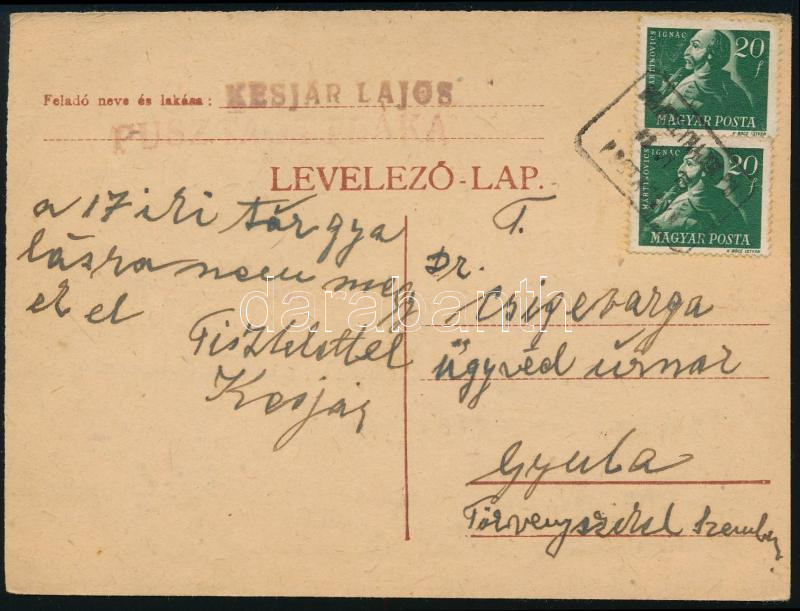 Feladó neve és lakása: KESJÁR LAJOS
LEVELEZŐ-LAP.
a 17 iki tárgya
lásra nem meg
el
Tisztelettel
Kesjár
T.
Dr.
Csigevarga
ügyvéd úrnak
Gyula
Törvényszékel szemben
MARTINOVICS
IGNÁC
20 f
MAGYAR POSTA
MARTINOVICS
IGNÁC
20 f
MAGYAR POSTA
darabanth